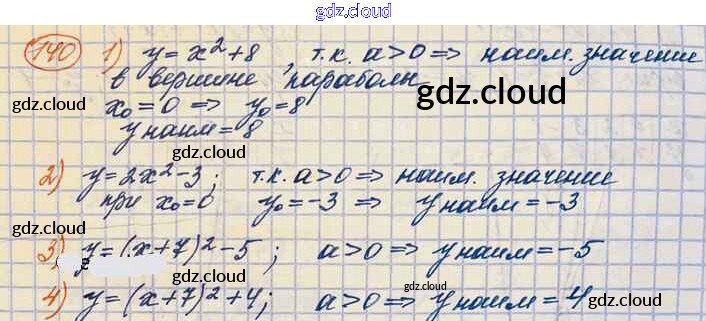 gdz.cloud
140 1) y = x² + 8, т.к. a > 0 => наим. значение
в вершине параболы
gdz.cloud
gdz.cloud
x₀ = 0 => y₀ = 8
gdz.cloud
y наим = 8
gdz.cloud
2) y = 2x² - 3; т.к. a > 0 => наим. значение
при x₀ = 0 y₀ = -3 => y наим = -3
gdz.cloud
3) y = (x + 7)² - 5; a > 0 => y наим = -5
gdz.cloud
gdz.cloud
4) y = (x + 7)² + 4; a > 0 => y наим = 4
gdz.cloud